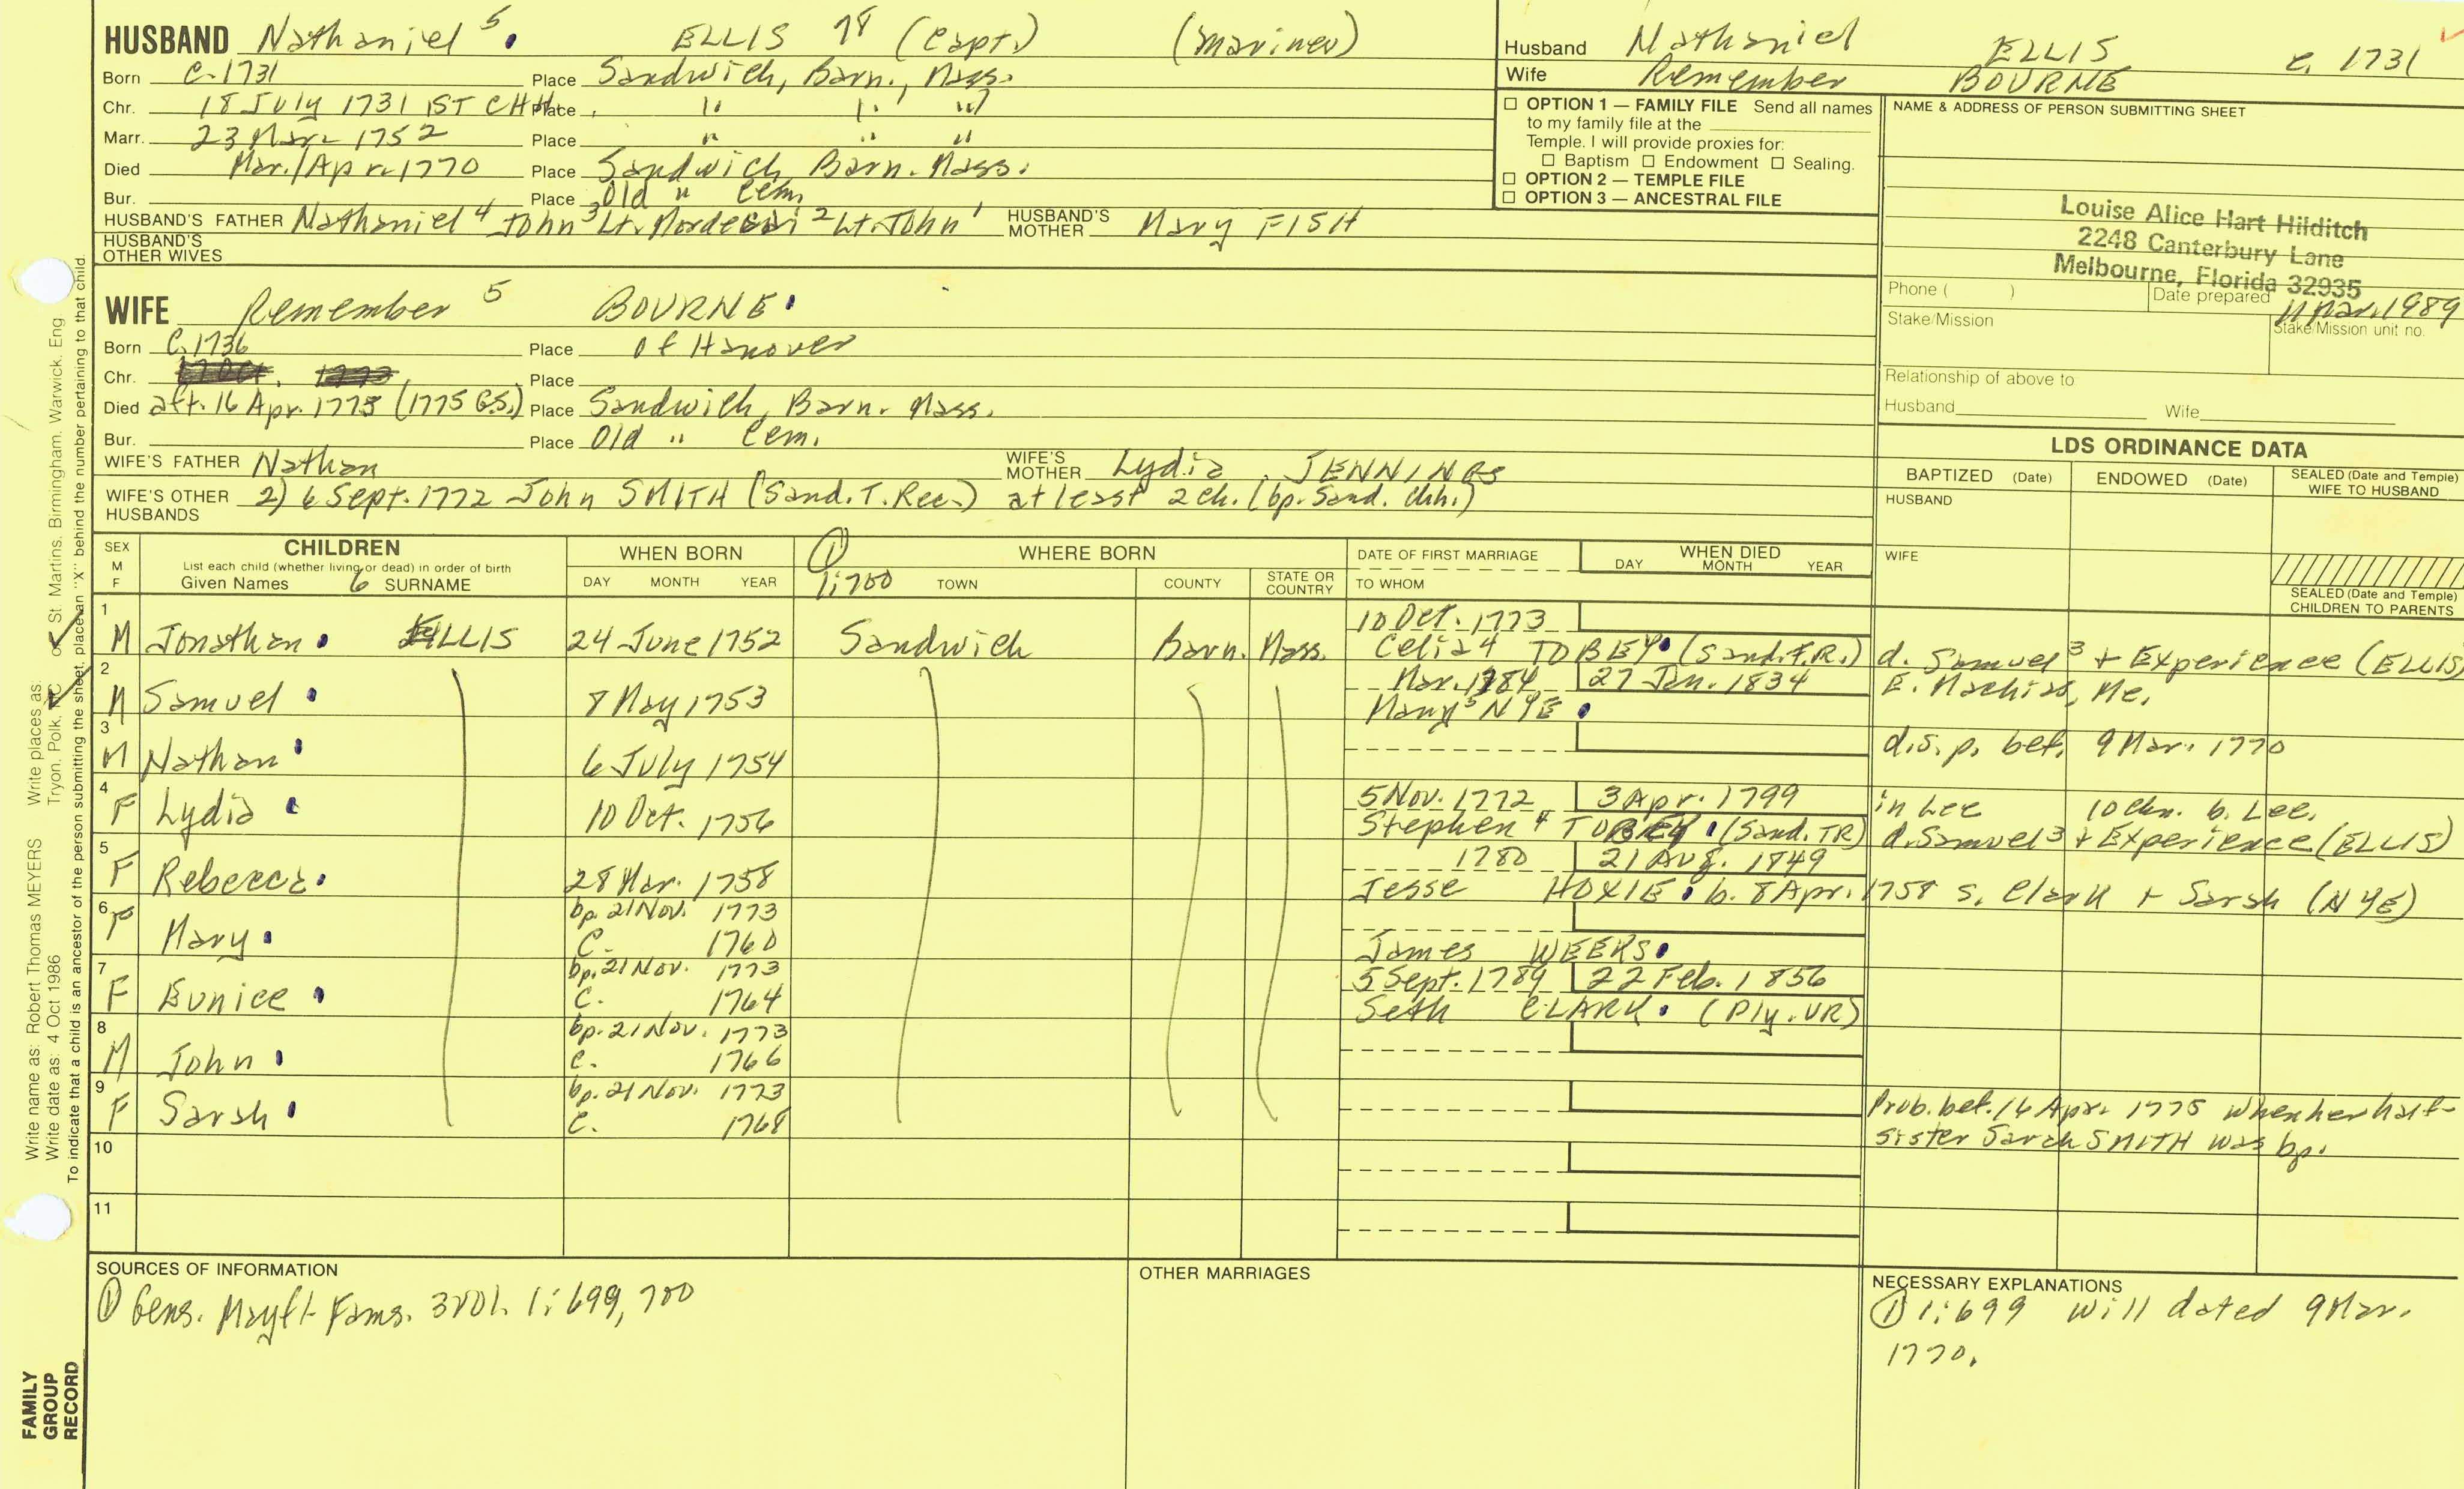 HUSBAND Nathaniel 5 ELLIS (Capt.) (mariner)
Born c. 1731 Place Sandwich, Barn., Mass.
Chr. 18 July 1731 1ST CHH Place " " "
Marr. 23 Mar. 1752 Place " " "
Died Mar./Apr. 1770 Place Sandwich, Barn. Mass.
Bur. Place Old " Cem.
HUSBAND'S FATHER Nathaniel 4 John 3 Lt. Mordecai 2 Lt. John 1 HUSBAND'S MOTHER Mary FISH
HUSBAND'S OTHER WIVES
Husband Nathaniel ELLIS c. 1731
Wife Remember BOURNE
☐ OPTION 1 — FAMILY FILE Send all names
to my family file at the
Temple. I will provide proxies for:
☐ Baptism ☐ Endowment ☐ Sealing.
☐ OPTION 2 — TEMPLE FILE
☐ OPTION 3 — ANCESTRAL FILE
NAME & ADDRESS OF PERSON SUBMITTING SHEET
Louise Alice Hart Hilditch
2248 Canterbury Lane
Melbourne, Florida 32935
Phone ( ) Date prepared 11 Mar. 1989
Stake/Mission Stake/Mission unit no.
Relationship of above to
Husband Wife
WIFE Remember 5 BOURNE
Born c. 1736 Place of Hanover
Chr. Place
Died aft. 16 Apr. 1775 (1775 G.S.) Place Sandwich, Barn. Mass.
Bur. Place Old " Cem.
WIFE'S FATHER Nathan WIFE'S MOTHER Lydia JENNINGS
WIFE'S OTHER HUSBANDS 2) 6 Sept. 1772 John SMITH (Sand. T. Rec.) at least 2 ch. (bp. Sand. Chh.)
LDS ORDINANCE DATA
BAPTIZED (Date) ENDOWED (Date) SEALED (Date and Temple) WIFE TO HUSBAND
HUSBAND
WIFE
SEALED (Date and Temple) CHILDREN TO PARENTS
SEX M F CHILDREN List each child (whether living or dead) in order of birth Given Names 6 SURNAME
WHEN BORN DAY MONTH YEAR
① 1:700 WHERE BORN TOWN COUNTY STATE OR COUNTRY
DATE OF FIRST MARRIAGE TO WHOM
WHEN DIED DAY MONTH YEAR
1 10 Oct. 1773
M Jonathan ELLIS 24 June 1752 Sandwich Barn. Mass. Celia 4 TOBEY (Sand. T.R.) d. Samuel 3 + Experience (ELLIS)
2 Mar. 1784 27 Jan. 1834 E. Machias, Me.
M Samuel 8 May 1753 Mary 5 NYE
3 d.s.p. bef. 9 Mar. 1770
M Nathan 6 July 1754
4 5 Nov. 1772 3 Apr. 1799 in Lee 10 chn. b. Lee.
F Lydia 10 Oct. 1756 Stephen 4 TOBEY (Sand. TR) d. Samuel 3 + Experience (ELLIS)
5 1780 21 Aug. 1849
F Rebecca 28 Mar. 1758 Jesse HOXIE b. 8 Apr. 1758 s. Clark + Sarah (NYE)
6 bp. 21 Nov. 1773
F Mary C. 1760 James WEEKS
7 bp. 21 Nov. 1773 5 Sept. 1789 22 Feb. 1856
F Eunice C. 1764 Seth CLARK (Ply. VR)
8 bp. 21 Nov. 1773
M John C. 1766
9 bp. 21 Nov. 1773 Prob. bef. 16 Apr. 1775 when her half-
F Sarah C. 1768 sister Sarah SMITH was bp.
10
11
SOURCES OF INFORMATION
① Gens. Mayfl. Fams. 3 vol. 1:699, 700
OTHER MARRIAGES
NECESSARY EXPLANATIONS
① 1:699 Will dated 9 Mar.
1770.
Write name as: Robert Thomas MEYERS Write places as: Tryon, Polk, NC or St. Martins, Birmingham, Warwick, Eng
Write date as: 4 Oct 1986
To indicate that a child is an ancestor of the person submitting the sheet, place an "X" behind the number pertaining to that child.
FAMILY
GROUP
RECORD